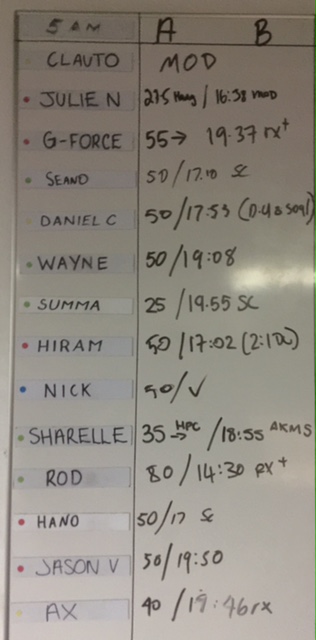 5 AM A B
CLAUTO MOD
JULIE N 275 / 16:38 mod
G-FORCE 55→ 19.37 rx+
SEAND 50/17.10 SC
DANIEL C 50/17:53
WAYNE 50/19:08
SUMMA 25/19.55 SC
HIRAM 50/17:02
NICK 50/√
SHARELLE 35→ HPC /18:55 AKMS
ROD 80/14:30 RX+
HANO 50/17 SC
JASON V 50/19:50
AX 40/19:46 rx